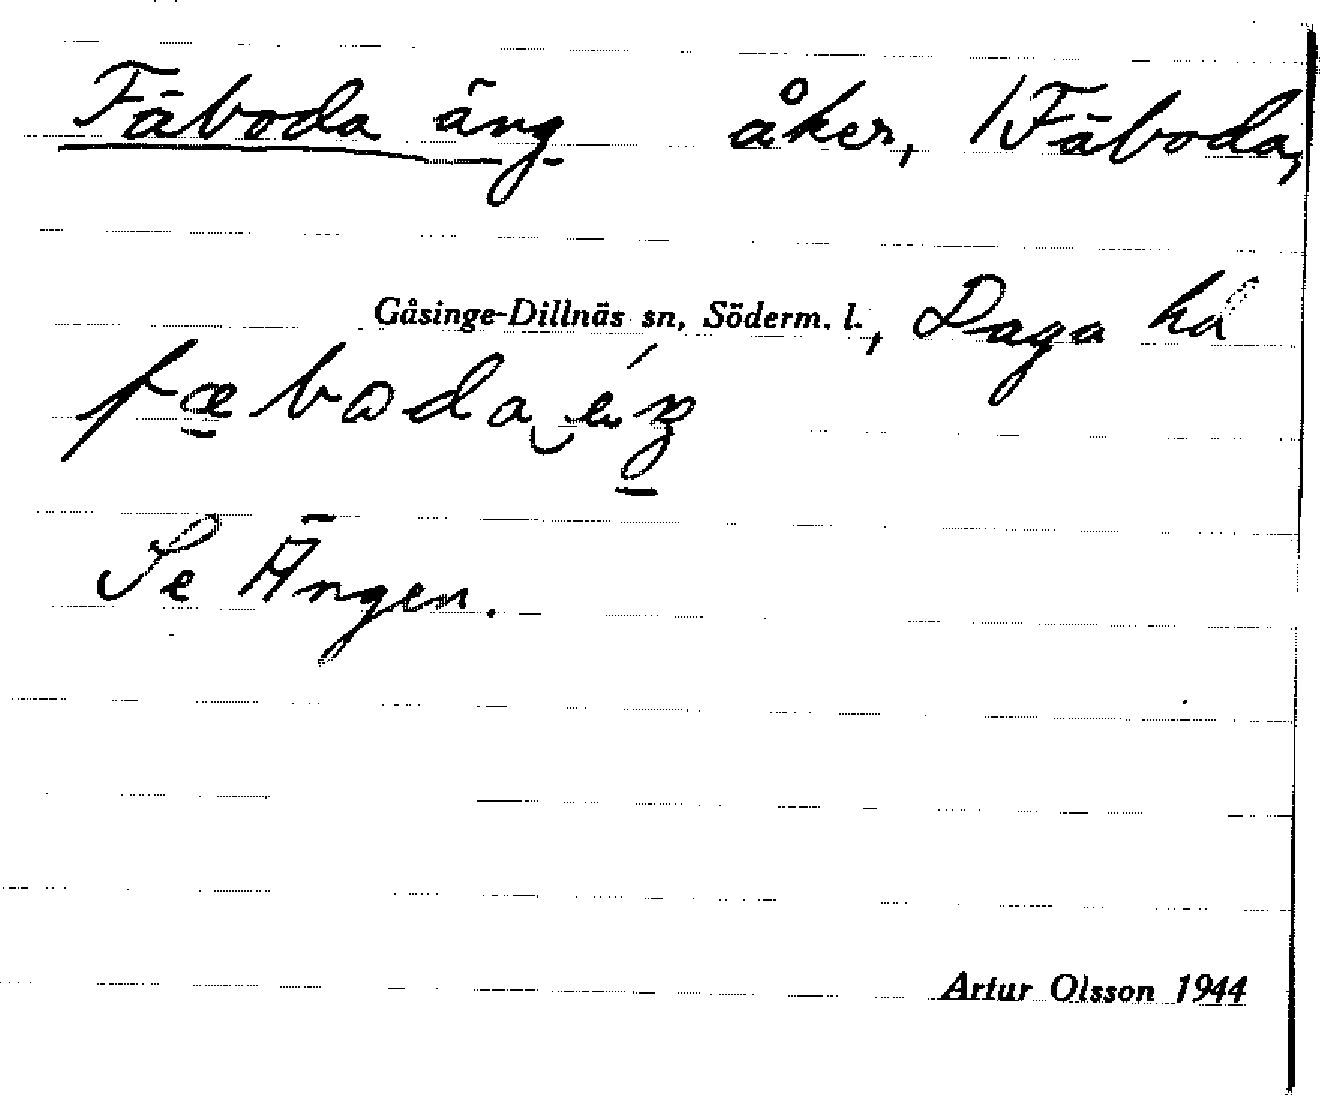 Fäboda äng åker, /Fäboda,
Gåsinge-Dillnäs sn, Söderm. l., Daga hd
Se Ängen.
Artur Olsson 1944